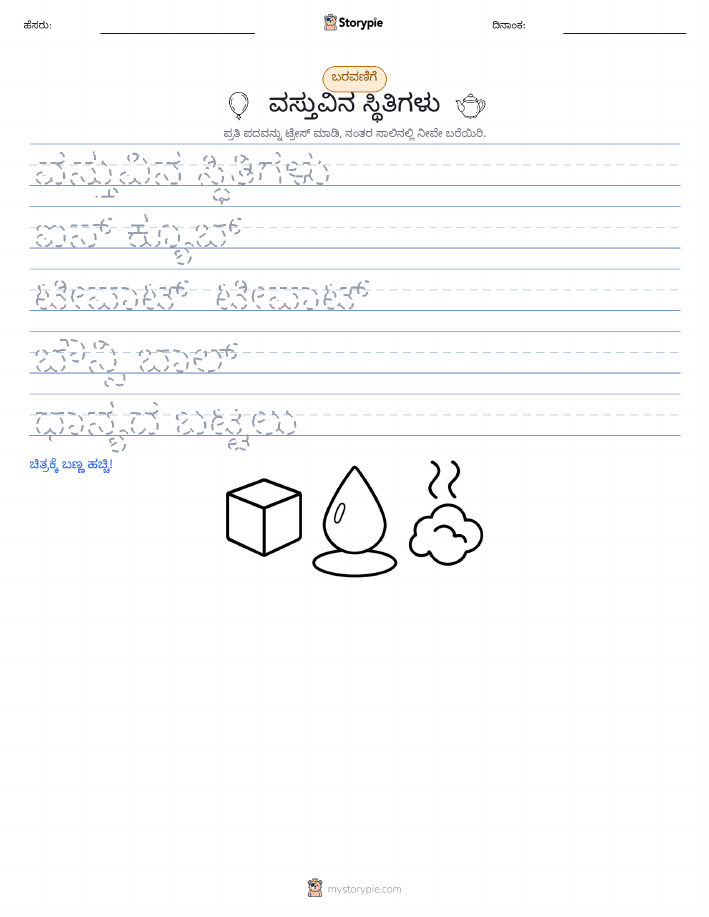 ಹೆಸರು:
Storypie
ದಿನಾಂಕ:
ಬರವಣಿಗೆ
ವಸ್ತುವಿನ ಸ್ಥಿತಿಗಳು
ಪ್ರತಿ ಪದವನ್ನು ಟ್ರೇಸ್ ಮಾಡಿ, ನಂತರ ಸಾಲಿನಲ್ಲಿ ನೀವೇ ಬರೆಯಿರಿ.
ವಸ್ತುವಿನ ಸ್ಥಿತಿಗಳು
ಐಸ್ ಕ್ಯೂಬ್
ಟೀಪಾಟ್ ಟೀಪಾಟ್
ಬೌನ್ಸಿ ಬಾಲ್
ಧಾನ್ಯದ ಬಟ್ಟಲು
ಚಿತ್ರಕ್ಕೆ ಬಣ್ಣ ಹಚ್ಚಿ!
mystorypie.com